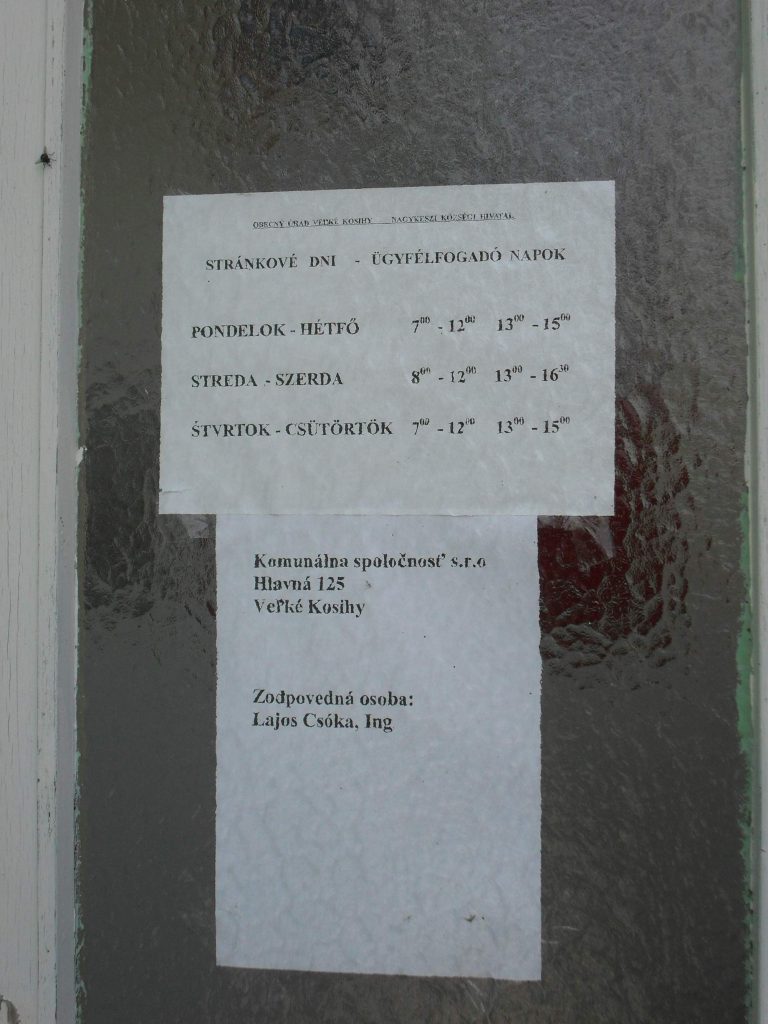 OBECNÝ ÚRAD VEĽKÉ KOSIHY NAGYKESZI KÖZSÉGI HIVATAL
STRÁNKOVÉ DNI - ÜGYFÉLFOGADÓ NAPOK
PONDELOK - HÉTFŐ 7⁰⁰ - 12⁰⁰ 13⁰⁰ - 15⁰⁰
STREDA - SZERDA 8⁰⁰ - 12⁰⁰ 13⁰⁰ - 16³⁰
ŠTVRTOK - CSÜTÖRTÖK 7⁰⁰ - 12⁰⁰ 13⁰⁰ - 15⁰⁰
Komunálna spoločnosť s.r.o
Hlavná 125
Veľké Kosihy
Zodpovedná osoba:
Lajos Csóka, Ing